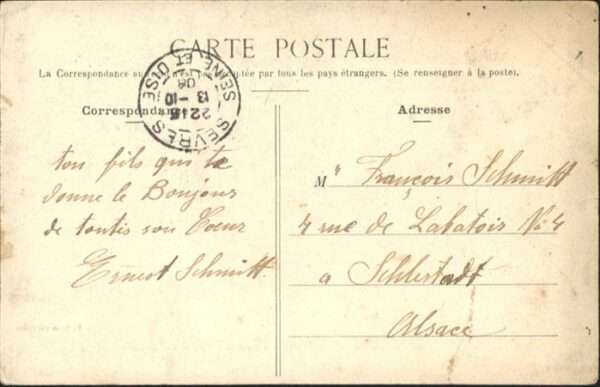 CARTE POSTALE
La Correspondance au par tous les pays étrangers. (Se renseigner à la poste).
Correspondan
Adresse
SEVRES
SEINE ET OISE
22 15
13 - 10
ton fils qui te
donne le Bonjour
de toutis son Coeur
Ernest Schmitt
Mr François Schmitt
4 rue de Labatois No 4
a Schlestadt
Alsace